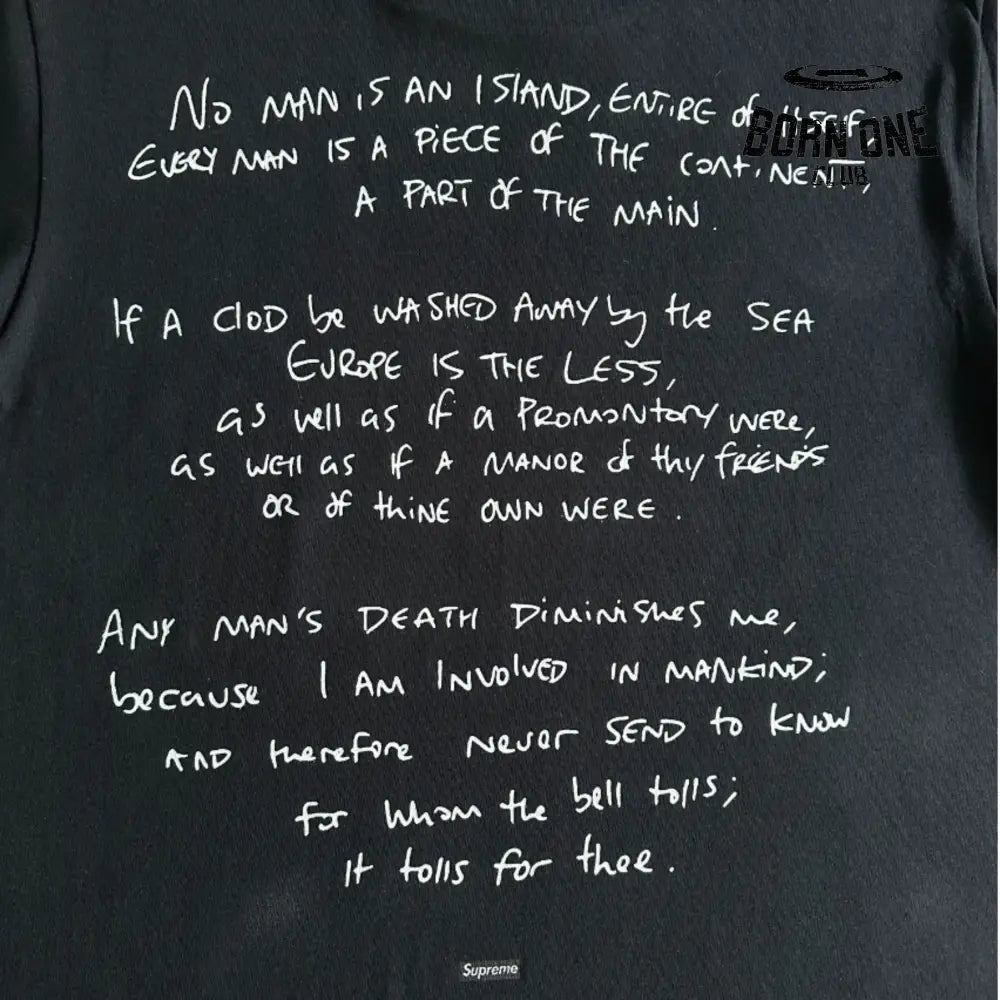 No MAN iS AN ISlAND, ENTiRE of itself,
EVERY MAN IS A PiECE of THE CoNtiNENT,
A PART Of THE MAiN.
If A ClOD be WASHED AwAY by the SEA
EUROPE IS THE LESS,
as well as if a PROMoNtoRY WERE,
as well as if A MANOR of thy fRiENDS
OR of thiNE OWN WERE.
ANY MAN'S DEATH DiMiniShes me,
because I AM INvolvED IN MANkiND;
AND therefore never SEND to kNow
for whom the bell tolls;
It tolls for thee.
Supreme
BORN ONE
CLUB